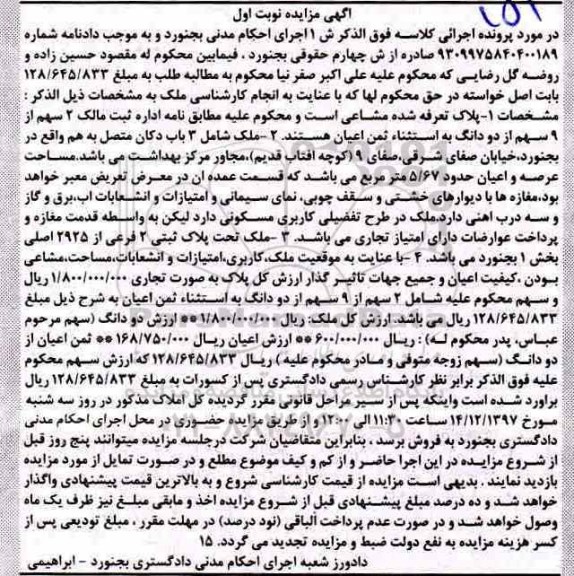 آگهی مزایده نوبت اول
در مورد پرونده اجرائی کلاسه فوق الذکر ش ۱اجرای احکام مدنی بجنورد و به موجب دادنامه شماره
۹۳۰۹۹۷۵۸۴۰۴۰۰۱۸۹ صادره از ش چهارم حقوقی بجنورد ، فیمابین محکوم له مقصود حسین زاده و
روضه گل رضایی که محکوم علیه علی اکبر صفر نیا محکوم به مطالبه طلب به مبلغ ۱۲۸/۶۴۵/۸۳۳
بابت اصل خواسته در حق محکوم لها که با عنایت به انجام کارشناسی ملک به مشخصات ذیل الذکر :
مشخصات ۱-پلاک تعرفه شده مشاعی است و محکوم علیه مطابق نامه اداره ثبت مالک ۲ سهم از
۹ سهم از دو دانگ به استثناء ثمن اعیان هستند. ۲ -ملک شامل ۳ باب دکان متصل به هم واقع در
بجنورد،خیابان صفای شرقی،صفای ۹ (کوچه افتاب قدیم)،مجاور مرکز بهداشت می باشد.مساحت
عرصه و اعیان حدود ۵/۶۷ متر مربع می باشد که قسمت عمده ان در معرض تعریض معبر خواهد
بود،مغازه ها با دیوارهای خشتی و سقف چوبی، نمای سیمانی و امتیازات و انشعابات اب،برق و گاز
و سه درب اهنی دارد.ملک در طرح تفضیلی کاربری مسکونی دارد لیکن به واسطه قدمت مغازه و
پرداخت عوارضات دارای امتیاز تجاری می باشد. ۳ -ملک تحت پلاک ثبتی ۲ فرعی از ۲۹۲۵ اصلی
بخش ۱ بجنورد می باشد. ۴ -با عنایت به موقعیت ملک،کاربری،امتیازات و انشعابات،مساحت،مشاعی
بودن ،کیفیت اعیان و جمیع جهات تاثیر گذار ارزش کل پلاک به صورت تجاری ۱/۸۰۰/۰۰۰/۰۰۰ ریال
و سهم محکوم علیه شامل ۲ سهم از ۹ سهم از دو دانگ به استثناء ثمن اعیان به شرح ذیل مبلغ
۱۲۸/۶۴۵/۸۳۳ ریال می باشد. ارزش کل ملک: ریال ۱/۸۰۰/۰۰۰/۰۰۰ ** ارزش دو دانگ (سهم مرحوم
عباس، پدر محکوم له) : ریال ۶۰۰/۰۰۰/۰۰۰ ** ارزش اعیان ریال ۱۶۸/۷۵۰/۰۰۰ ** ثمن اعیان از
دو دانگ (سهم زوجه متوفی و مادر محکوم علیه ) ریال ۱۲۸/۶۴۵/۸۳۳ که ارزش سهم محکوم
علیه فوق الذکر برابر نظر کارشناس رسمی دادگستری پس از کسورات به مبلغ ۱۲۸/۶۴۵/۸۳۳ ریال
براورد شده است واینکه پس از سیر مراحل قانونی مقرر گردیده کل املاک مذکور در روز سه شنبه
مورخ ۱۴/۱۲/۱۳۹۷ ساعت ۱۱:۳۰ الی ۱۲:۰۰ و از طریق مزایده حضوری در محل اجرای احکام مدنی
دادگستری بجنورد به فروش برسد ، بنابراین متقاضیان شرکت درجلسه مزایده میتوانند پنج روز قبل
از شروع مزایده در این اجرا حاضر و از کم و کیف موضوع مطلع و در صورت تمایل از مورد مزایده
بازدید نمایند . بدیهی است مزایده از قیمت کارشناسی شروع و به بالاترین قیمت پیشنهادی واگذار
خواهد شد و ده درصد مبلغ پیشنهادی قبل از شروع مزایده اخذ و مابقی مبلغ نیز ظرف یک ماه
وصول خواهد شد و در صورت عدم پرداخت الباقی (نود درصد) در مهلت مقرر ، مبلغ تودیعی پس از
کسر هزینه مزایده به نفع دولت ضبط و مزایده تجدید می گردد. ۱۵
دادورز شعبه اجرای احکام مدنی دادگستری بجنورد - ابراهیمی